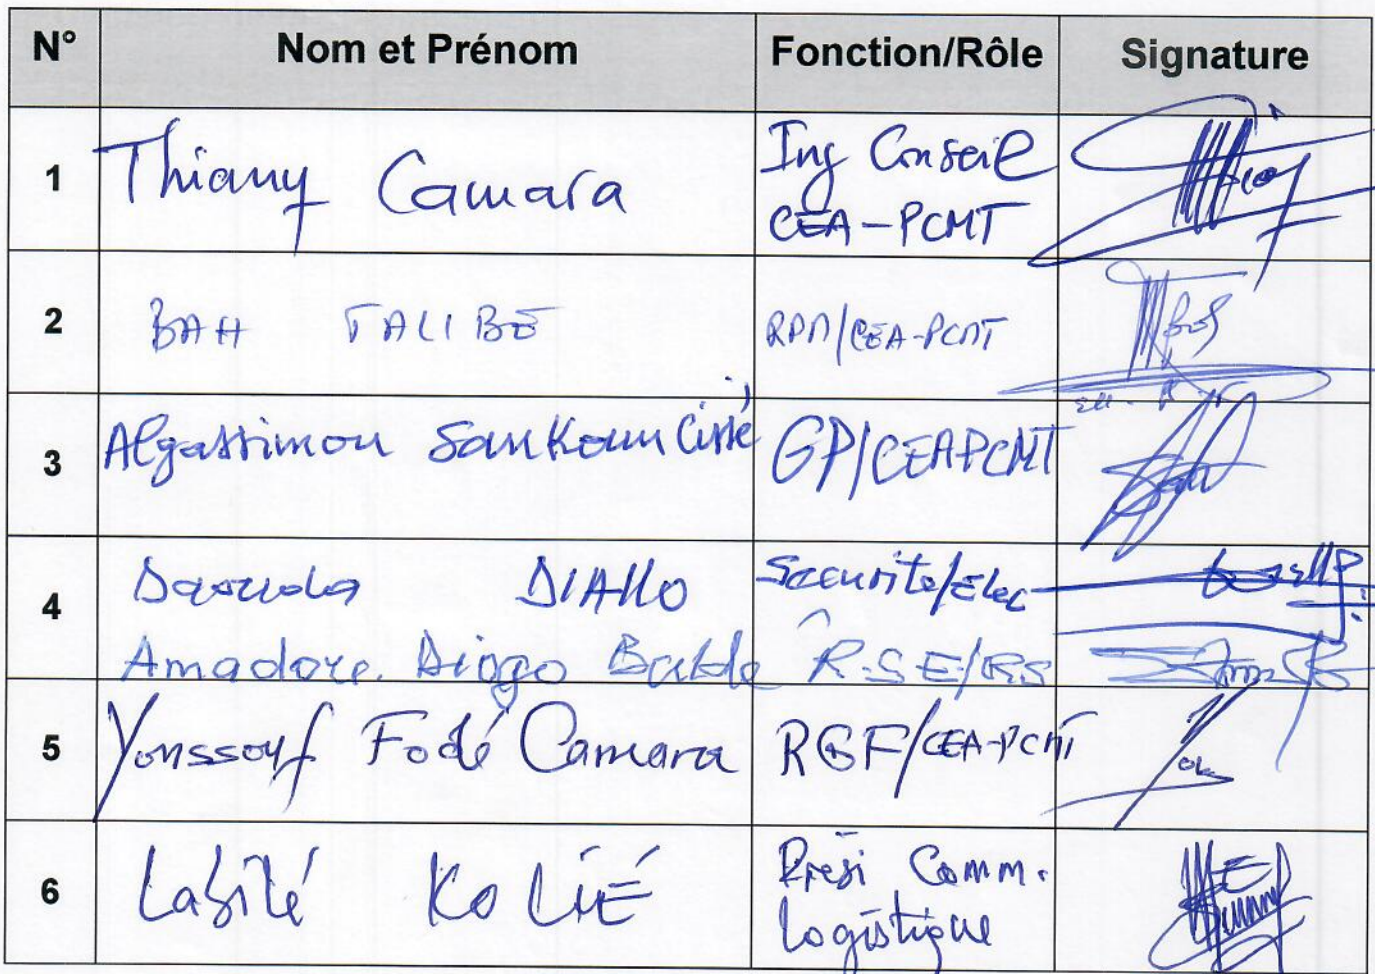 N° Nom et Prénom Fonction/Rôle Signature
1 Thiany Camara Ing Conseil
CEA-PCMT
2 BAH TALIBÉ RPM/CEA-PCMT
3 Algassimou Sankoun Cissé GP/CEAPCMT
4 Daouda DIALLO Securite/Elec
Amadou Diogo Balde R-SE/RS
5 Youssouf Fodé Camara RGF/CEA-PCMT
6 Labilé KOLIÉ Presi Comm.
Logistique